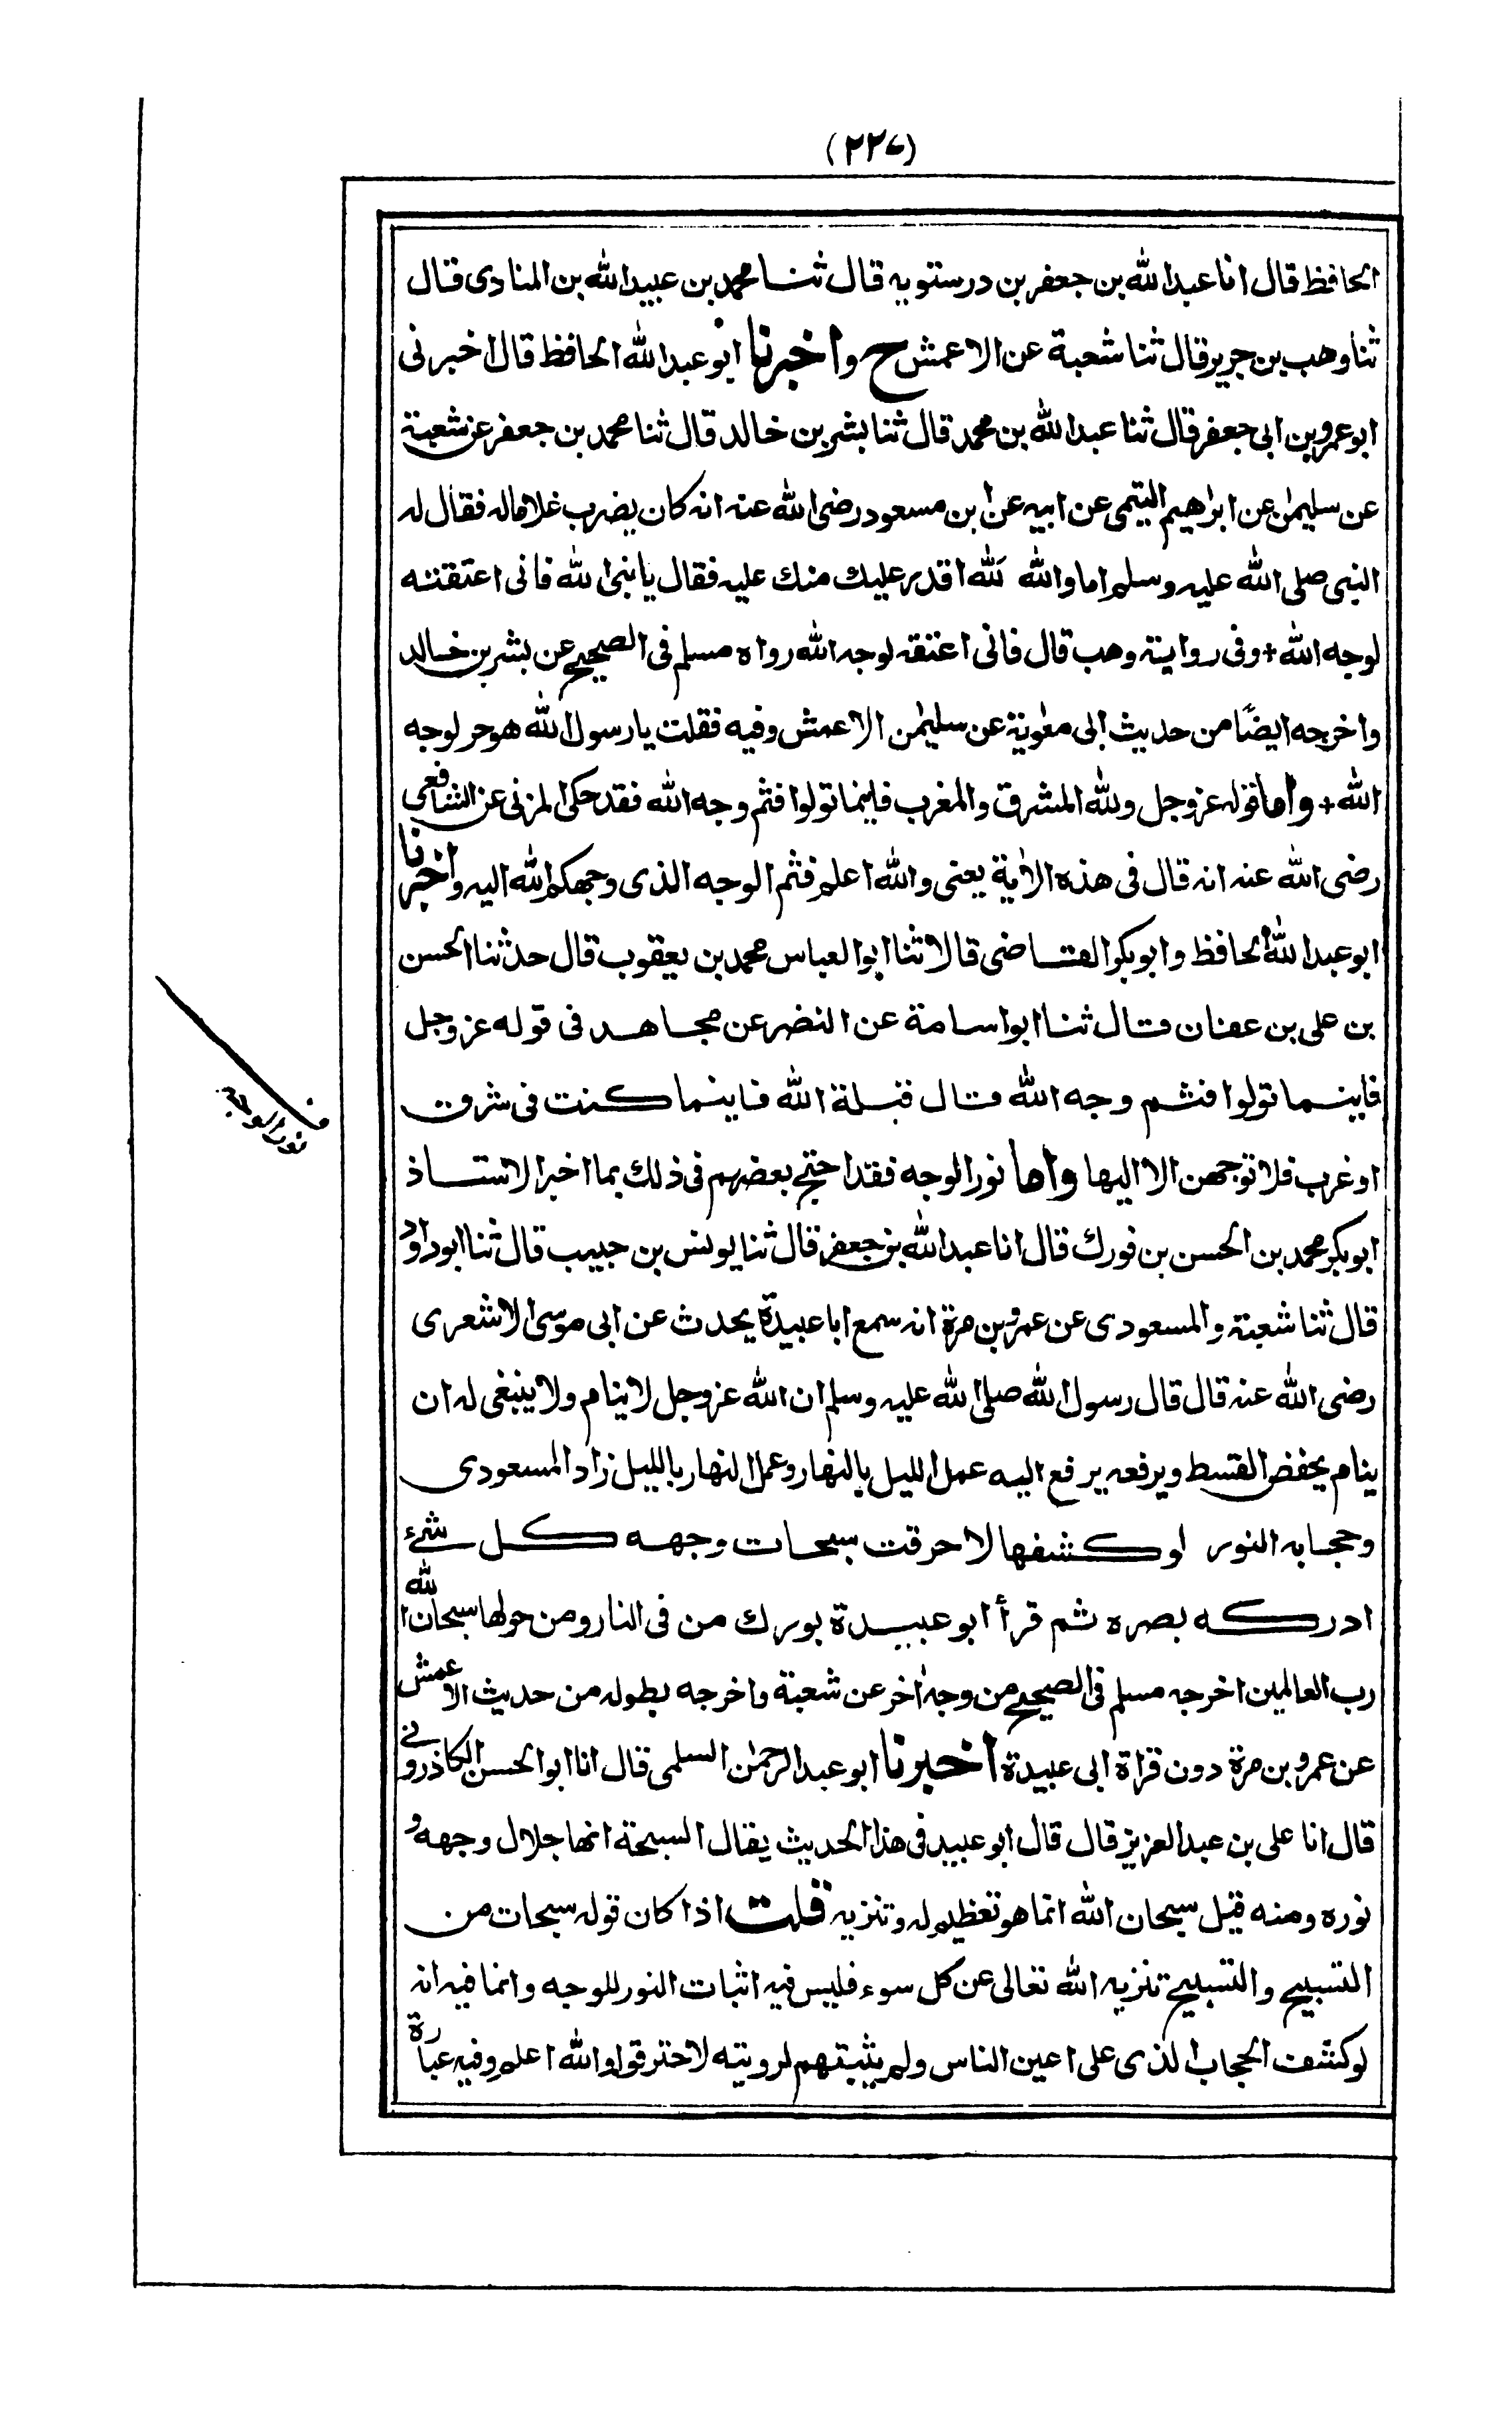 (٢٢٧)
الحافظ قال انا عبدالله بن جعفر بن درستويه قال ثنا محمد بن عبيدالله بن المنادى قال
ثنا وهب بن جرير قال ثنا شعبة عن الاعمش ح واخبرنا ابو عبدالله الحافظ قال اخبرنى
ابو عمرو بن ابى جعفر قال ثنا عبدالله بن محمد قال ثنا بشر بن خالد قال ثنا محمد بن جعفر عن شعبة
عن سليمن عن ابراهيم التيمى عن ابيه عن ابن مسعود رضى الله عنه انه كان يضرب غلاما له فقال له
النبى صلى الله عليه وسلم اما والله لله اقدر عليك منك عليه فقال يا نبى الله فانى اعتقته
لوجه الله + وفى رواية وهب قال فانى اعتقه لوجه الله رواه مسلم فى الصحيح عن بشر بن خالد
واخرجه ايضًا من حديث ابى معوية عن سليمن الاعمش وفيه فقلت يا رسول الله هو حر لوجه
الله + واما قوله عز وجل ولله المشرق والمغرب فاينما تولوا فثم وجه الله فقد حكى المزنى عن الشافعى
رضى الله عنه انه قال فى هذه الاية يعنى والله اعلم فثم الوجه الذى وجهكم الله اليه واخبرنا
ابو عبدالله الحافظ وابوبكر القاضى قالا ثنا ابوالعباس محمد بن يعقوب قال حدثنا الحسن
بن على بن عفان قال ثنا ابو اسامة عن النضر عن مجاهد فى قوله عز وجل
فاينما تولوا فثم وجه الله قال قبلة الله فاينما كنت فى شرق
او غرب فلا توجهن الا اليها واما نور الوجه فقد احتج بعضهم فى ذلك بما اخبر الاستاذ
ابوبكر محمد بن الحسن بن فورك قال انا عبدالله بن جعفر قال ثنا يونس بن حبيب قال ثنا ابوداود
قال ثنا شعبة والمسعودى عن عمرو بن مرة انه سمع ابا عبيدة يحدث عن ابى موسى الاشعرى
رضى الله عنه قال قال رسول الله صلى الله عليه وسلم ان الله عز وجل لا ينام ولا ينبغى له ان
ينام يخفض القسط ويرفعه يرفع اليه عمل الليل بالنهار وعمل النهار بالليل زاد المسعودى
وحجابه النور لو كشفها لاحرقت سبحات وجهه كل شئ
ادركه بصره ثم قرأ ابو عبيدة بورك من فى النار ومن حولها سبحان الله
رب العالمين اخرجه مسلم فى الصحيح من وجه اخر عن شعبة واخرجه بطوله من حديث الاعمش
عن عمرو بن مرة دون قراة ابى عبيدة اخبرنا ابو عبدالرحمن السلمى قال انا ابوالحسن الكاذرونى
قال انا على بن عبدالعزيز قال قال ابو عبيد فى هذا الحديث يقال السبحة انها جلال وجهه و
نوره ومنه قيل سبحان الله انما هو تعظيم له وتنزيه قلت اذا كان قوله سبحات من
التسبيح والتسبيح تنزيه الله تعالى عن كل سوء فليس فيه اثبات النور للوجه وانما فيه انه
لو كشف الحجاب الذى على اعين الناس ولم يثبتهم لرويته لاحترقوا والله اعلم وفيه عبارة
ف نور الوجه